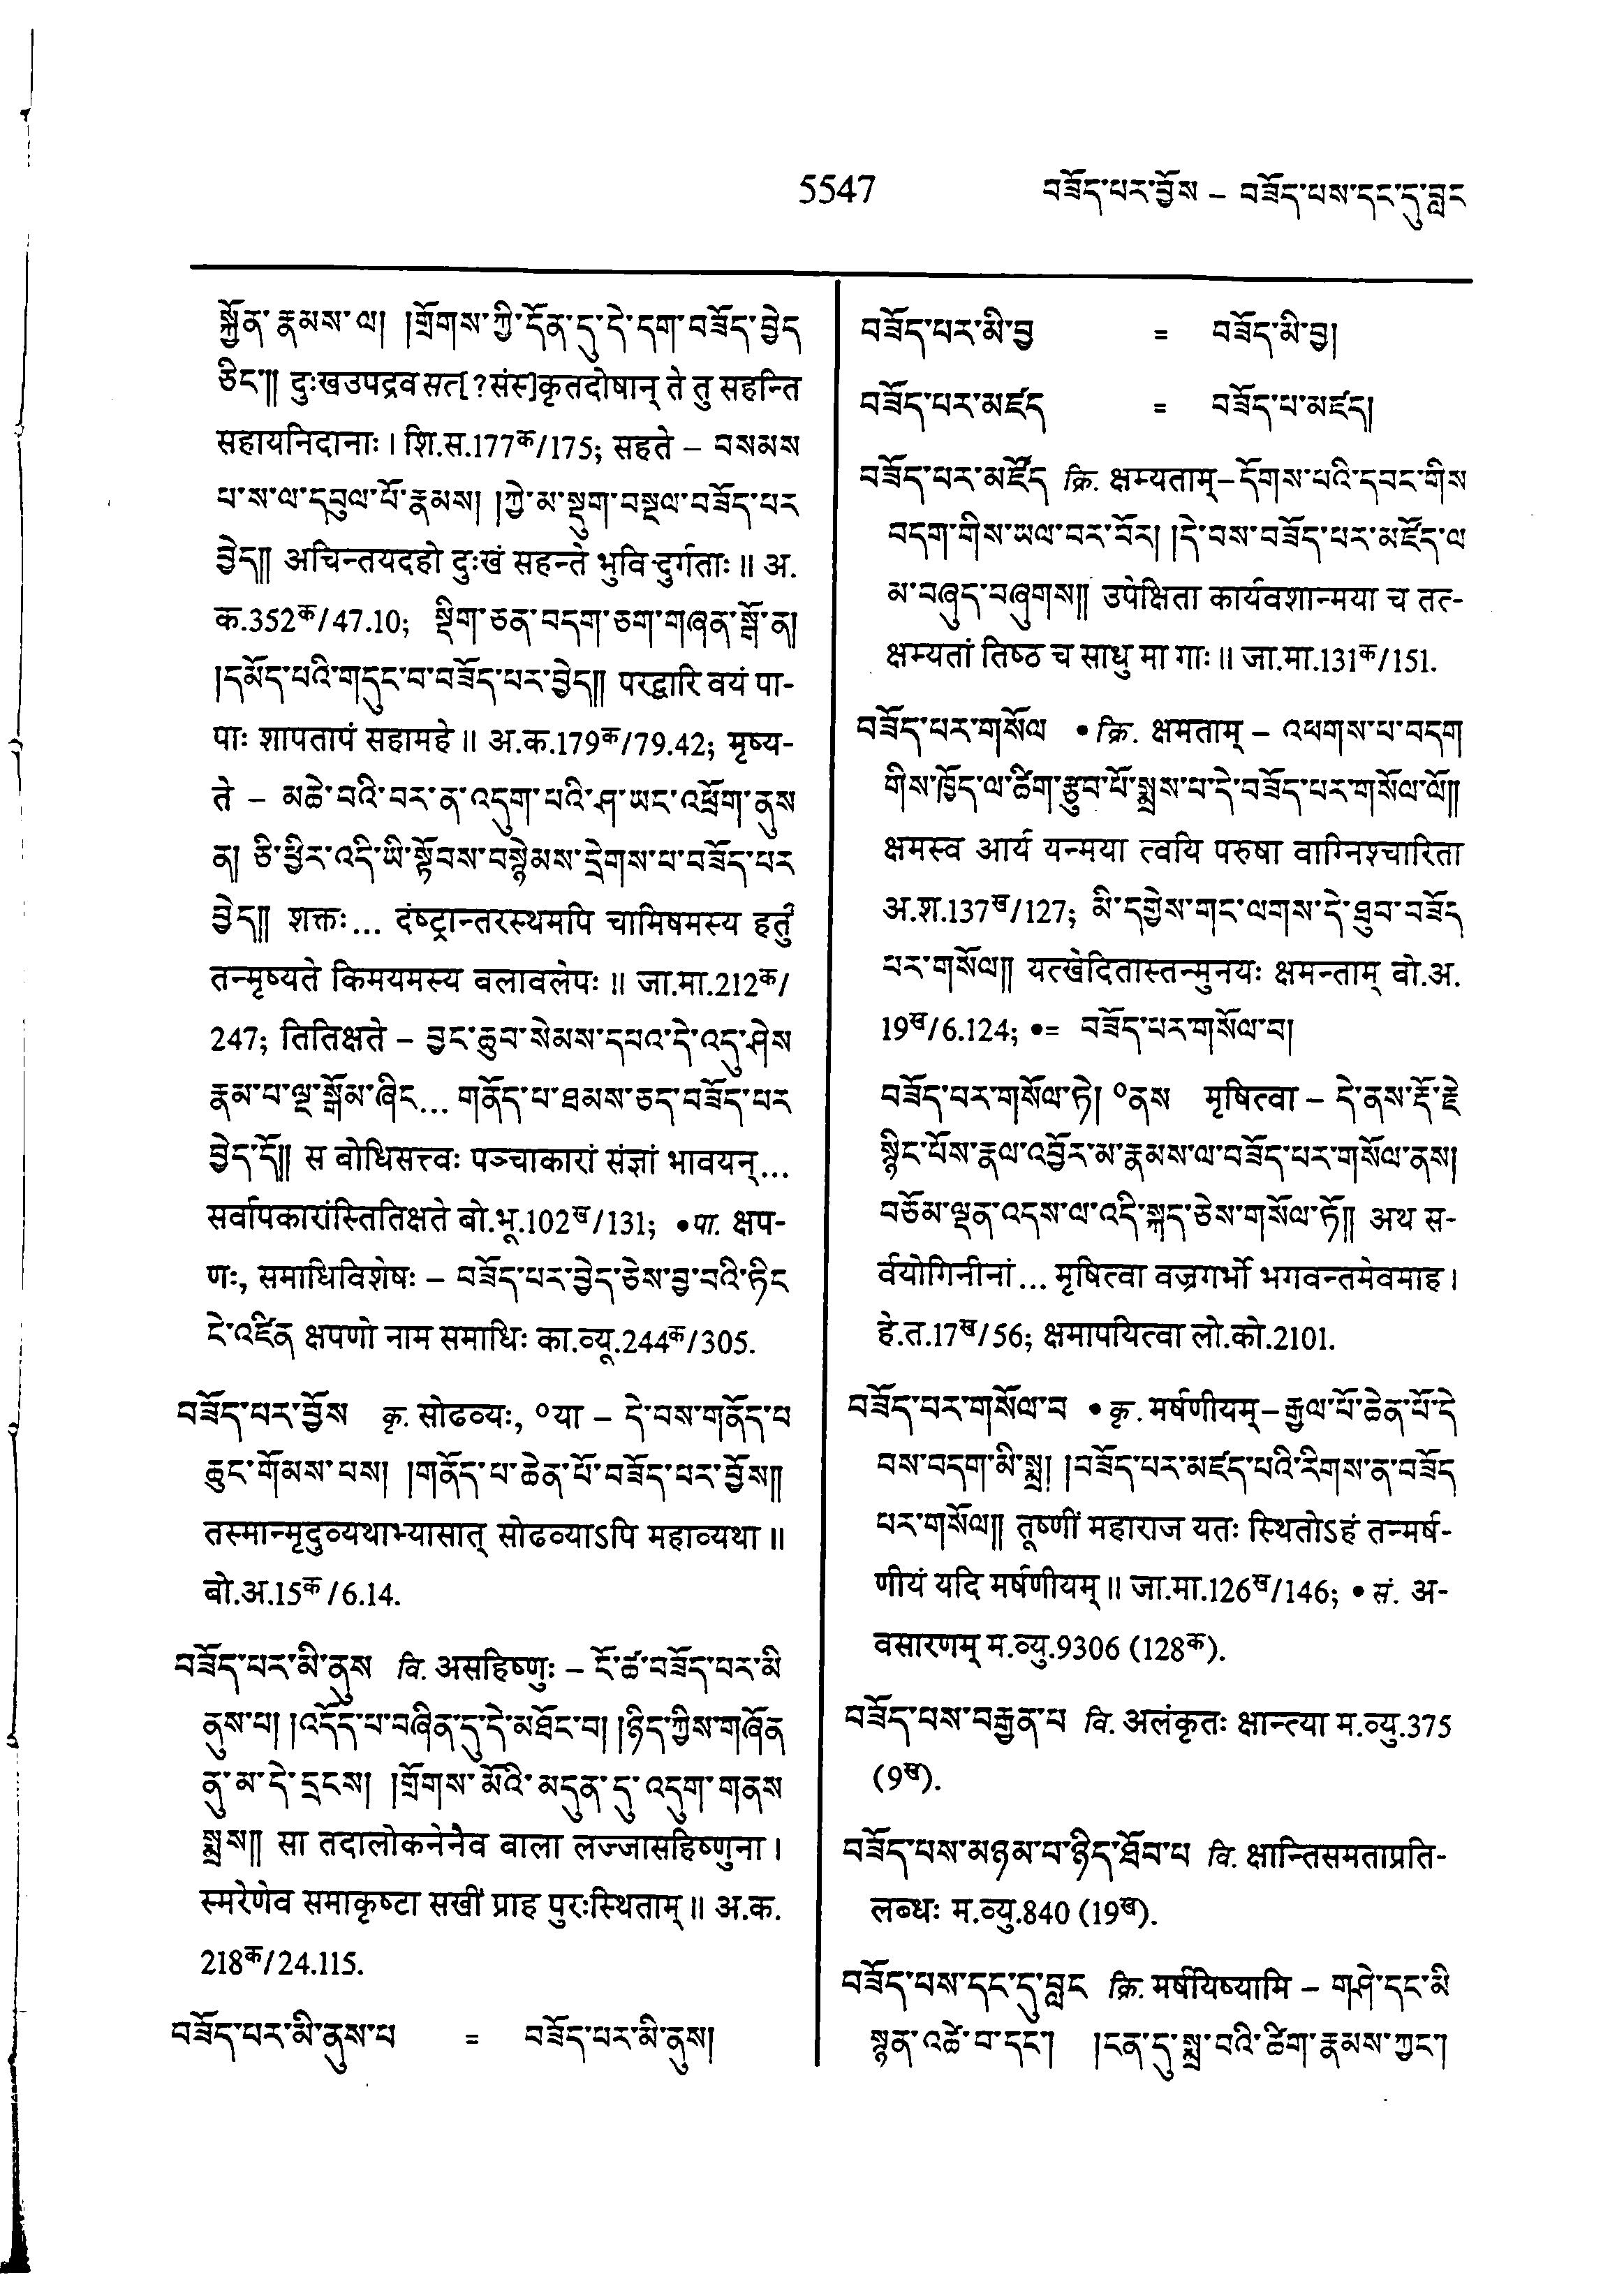 5547 བཟོད་པར་བྱོས – བཟོད་པས་དང་དུ་བླང
སྐྱོན་རྣམས་ལ། །གྲོགས་ཀྱི་དོན་དུ་དེ་དག་བཟོད་བྱེད
ཅིང༌།། दुःखउपद्रव सत्[?संस्]कृतदोषान् ते तु सहन्ति
सहायनिदानाः । शि.स.177क/175; सहते – བསམས
པ་ས་ལ་དབུལ་པོ་རྣམས། །ཀྱེ་མ་སྡུག་བསྔལ་བཟོད་པར
བྱེད།། अचिन्तयदहो दुःखं सहन्ते भुवि दुर्गताः ॥ अ.
क.352क/47.10; སྡིག་ཅན་བདག་ཅག་གཞན་སྒོ་ན།
།དམོད་པའི་གདུང་བ་བཟོད་པར་བྱེད།། परद्वारि वयं पा-
पाः शापतापं सहामहे ॥ अ.क.179क/79.42; मृष्य-
ते – མཆེ་བའི་བར་ན་འདུག་པའི་ཤ་ཡང་འཕྲོག་ནུས
ན། ཅི་ཕྱིར་འདི་ཡི་སྟོབས་བསྙེམས་དྲེགས་པ་བཟོད་པར
བྱེད།། शक्तः... दंष्ट्रान्तरस्थमपि चामिषमस्य हर्तुं
तन्मृष्यते किमयमस्य बलावलेपः ॥ जा.मा.212क/
247; तितिक्षते – བྱང་ཆུབ་སེམས་དཔའ་དེ་འདུ་ཤེས
རྣམ་པ་ལྔ་སྒོམ་ཞིང... གནོད་པ་ཐམས་ཅད་བཟོད་པར
བྱེད་དོ།། स बोधिसत्त्वः पञ्चाकारां संज्ञां भावयन्...
सर्वापकारांस्तितिक्षते बो.भू.102ख/131; •पा. क्षप-
णः, समाधिविशेषः – བཟོད་པར་བྱེད་ཅེས་བྱ་བའི་ཏིང
ངེ་འཛིན क्षपणो नाम समाधिः का.व्यू.244क/305.
བཟོད་པར་བྱོས कृ. सोढव्यः, ०या – དེ་བས་གནོད་པ
ཆུང་གོམས་པས། །གནོད་པ་ཆེན་པོ་བཟོད་པར་བྱོས།།
तस्मान्मृदुव्यथाभ्यासात् सोढव्याऽपि महाव्यथा ॥
बो.अ.15क/6.14.
བཟོད་པར་མི་ནུས वि. असहिष्णुः – ངོ་ཚ་བཟོད་པར་མི
ནུས་པ། །འདོད་པ་བཞིན་དུ་དེ་མཐོང་བ། །ཉིད་ཀྱིས་གཞོན
ནུ་མ་དེ་དྲངས། །གྲོགས་མོའི་མདུན་དུ་འདུག་གནས
སྨྲས།། सा तदालोकनेनैव बाला लज्जासहिष्णुना ।
स्मरेणेव समाकृष्टा सखीं प्राह पुरःस्थिताम् ॥ अ.क.
218क/24.115.
བཟོད་པར་མི་ནུས་པ = བཟོད་པར་མི་ནུས།
བཟོད་པར་མི་བྱ = བཟོད་མི་བྱ།
བཟོད་པར་མཛད = བཟོད་པ་མཛད།
བཟོད་པར་མཛོད क्रि. क्षम्यताम् – དོགས་པའི་དབང་གིས
བདག་གིས་ཡལ་བར་བོར། །དེ་བས་བཟོད་པར་མཛོད་ལ
མ་བཞུད་བཞུགས།། उपेक्षिता कार्यवशान्मया च तत्-
क्षम्यतां तिष्ठ च साधु मा गाः ॥ जा.मा.131क/151.
བཟོད་པར་གསོལ • क्रि. क्षमताम् – འཕགས་པ་བདག
གིས་ཁྱོད་ལ་ཚིག་རྩུབ་པོ་སྨྲས་པ་དེ་བཟོད་པར་གསོལ་ལོ།།
क्षमस्व आर्य यन्मया त्वयि परुषा वाग्निश्चारिता
अ.श.137ख/127; མི་དགྱེས་གང་ལགས་དེ་ཐུབ་བཟོད
པར་གསོལ།། यत्खेदितास्तन्मुनयः क्षमन्ताम् बो.अ.
19ख/6.124; •= བཟོད་པར་གསོལ་བ།
བཟོད་པར་གསོལ་ཏེ། ०ནས मृषित्वा – དེ་ནས་རྡོ་རྗེ
སྙིང་པོས་རྣལ་འབྱོར་མ་རྣམས་ལ་བཟོད་པར་གསོལ་ནས།
བཅོམ་ལྡན་འདས་ལ་འདི་སྐད་ཅེས་གསོལ་ཏོ།། अथ स-
र्वयोगिनीनां... मृषित्वा वज्रगर्भो भगवन्तमेवमाह ।
हे.त.17ख/56; क्षमापयित्वा लो.को.2101.
བཟོད་པར་གསོལ་བ • कृ. मर्षणीयम् – རྒྱལ་པོ་ཆེན་པོ་དེ
བས་བདག་མི་སྨྲ། །བཟོད་པར་མཛད་པའི་རིགས་ན་བཟོད
པར་གསོལ།། तूष्णीं महाराज यतः स्थितोऽहं तन्मर्ष-
णीयं यदि मर्षणीयम् ॥ जा.मा.126ख/146; • सं. अ-
वसारणम् म.व्यु.9306 (128क).
བཟོད་པས་བརྒྱན་པ वि. अलंकृतः क्षान्त्या म.व्यु.375
(9ख).
བཟོད་པས་མཉམ་པ་ཉིད་ཐོབ་པ वि. क्षान्तिसमताप्रति-
लब्धः म.व्यु.840 (19ख).
བཟོད་པས་དང་དུ་བླང क्रि. मर्षयिष्यामि – གཤེ་དང་མི
སྙན་འཚེ་བ་དང༌། །ངན་དུ་སྨྲ་བའི་ཚིག་རྣམས་ཀྱང༌།